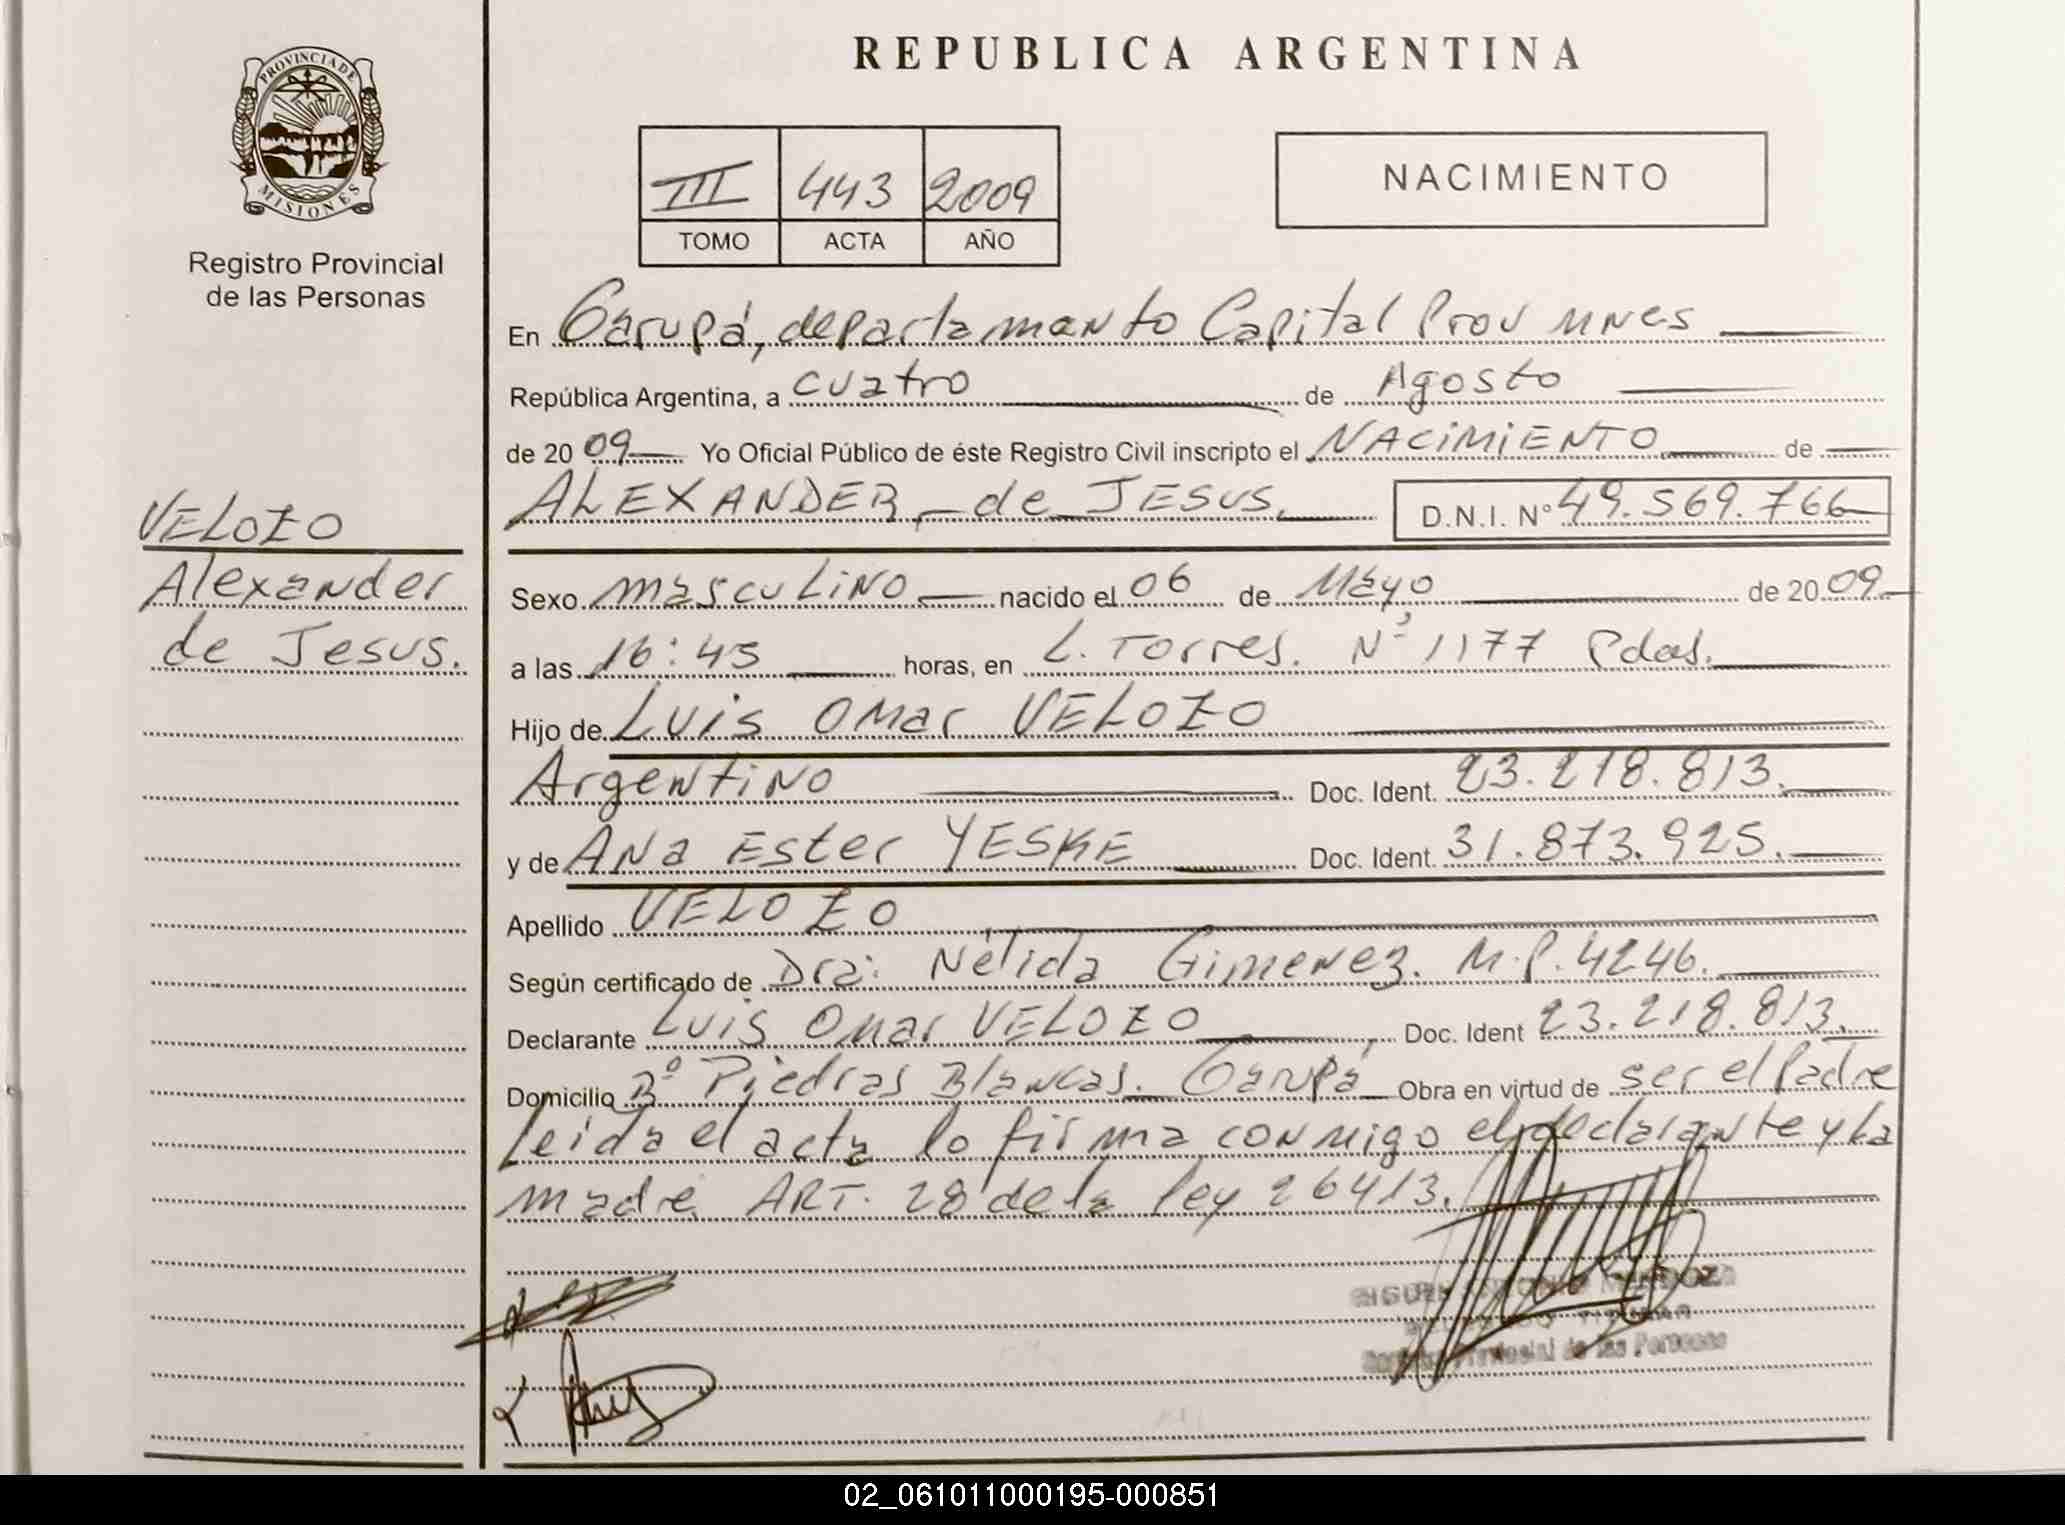 REPUBLICA ARGENTINA
PROVINCIA DE
MISIONES
Registro Provincial
de las Personas
III 443 2009
TOMO ACTA AÑO
NACIMIENTO
En Garupá, departamento Capital Prov Mnes
República Argentina, a cuatro de Agosto
de 2009 Yo Oficial Público de éste Registro Civil inscripto el NACIMIENTO de
ALEXANDER de JESUS. D.N.I. N° 49.569.766
VELOZO
Alexander
de Jesus.
Sexo masculino nacido el 06 de Mayo de 2009
a las 16:45 horas, en L. Torres. N° 1177 Pdas.
Hijo de Luis Omar VELOZO
Argentino Doc. Ident. 23.218.813.
y de Ana Ester YESKE Doc. Ident. 31.873.925.
Apellido VELOZO
Según certificado de Dra: Nélida Gimenez. M.P. 4246.
Declarante Luis Omar VELOZO Doc. Ident 23.218.813.
Domicilio B° Piedras Blancas. Garupá Obra en virtud de ser el Padre
Leida el acta lo firma conmigo el declarante y la
madre ART. 28 de la ley 26413.
Provincial de las Personas
02_061011000195-000851